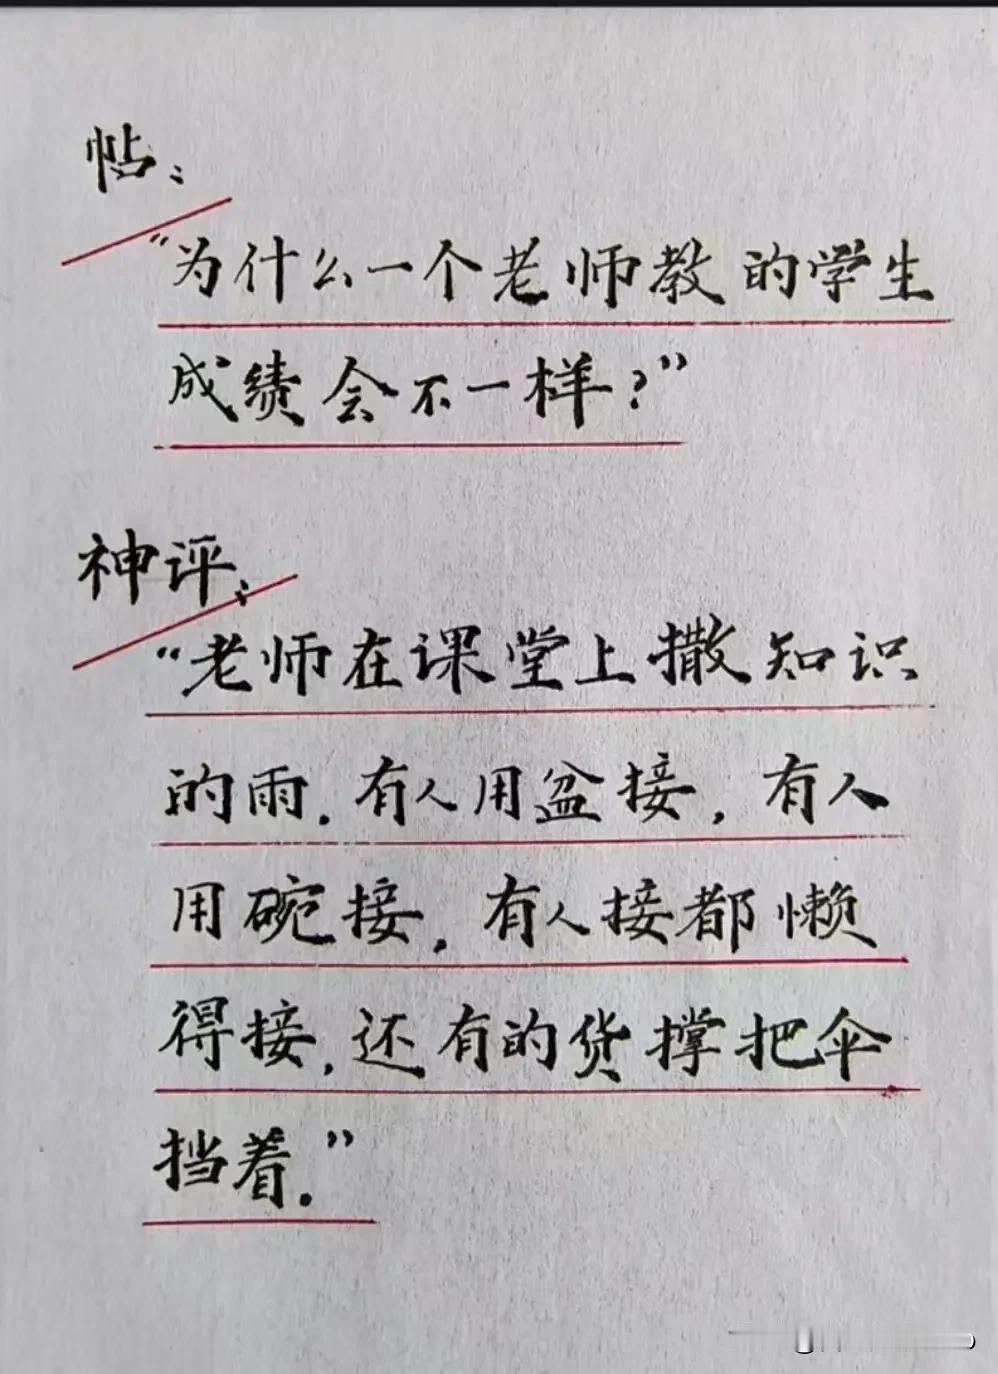 帖：
“为什么一个老师教的学生
成绩会不一样？”
神评：
“老师在课堂上撒知识
的雨，有人用盆接，有人
用碗接，有人接都懒
得接，还有的货撑把伞
挡着。”